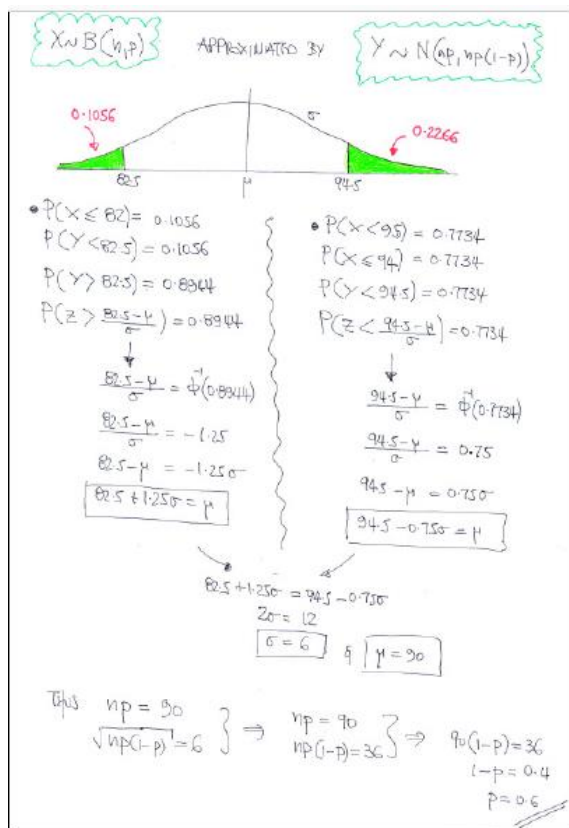 X~B(n,p) APPROXIMATED BY Y~N(np, np(1-p))
0.1056
σ
0.2266
82.5 μ 94.5
• P(X≤82) = 0.1056
P(Y<82.5) = 0.1056
P(Y>82.5) = 0.8944
P(Z > (82.5-μ)/σ) = 0.8944
(82.5-μ)/σ = -Φ⁻¹(0.8944)
(82.5-μ)/σ = -1.25
82.5-μ = -1.25σ
82.5+1.25σ = μ
• P(X<95) = 0.7734
P(X≤94) = 0.7734
P(Y<94.5) = 0.7734
P(Z < (94.5-μ)/σ) = 0.7734
(94.5-μ)/σ = Φ⁻¹(0.7734)
(94.5-μ)/σ = 0.75
94.5-μ = 0.75σ
94.5-0.75σ = μ
82.5+1.25σ = 94.5-0.75σ
2σ = 12
σ = 6 & μ = 90
Thus np = 90
√np(1-p) = 6
} ⇒ np = 90
np(1-p) = 36
} ⇒ 90(1-p) = 36
1-p = 0.4
p = 0.6